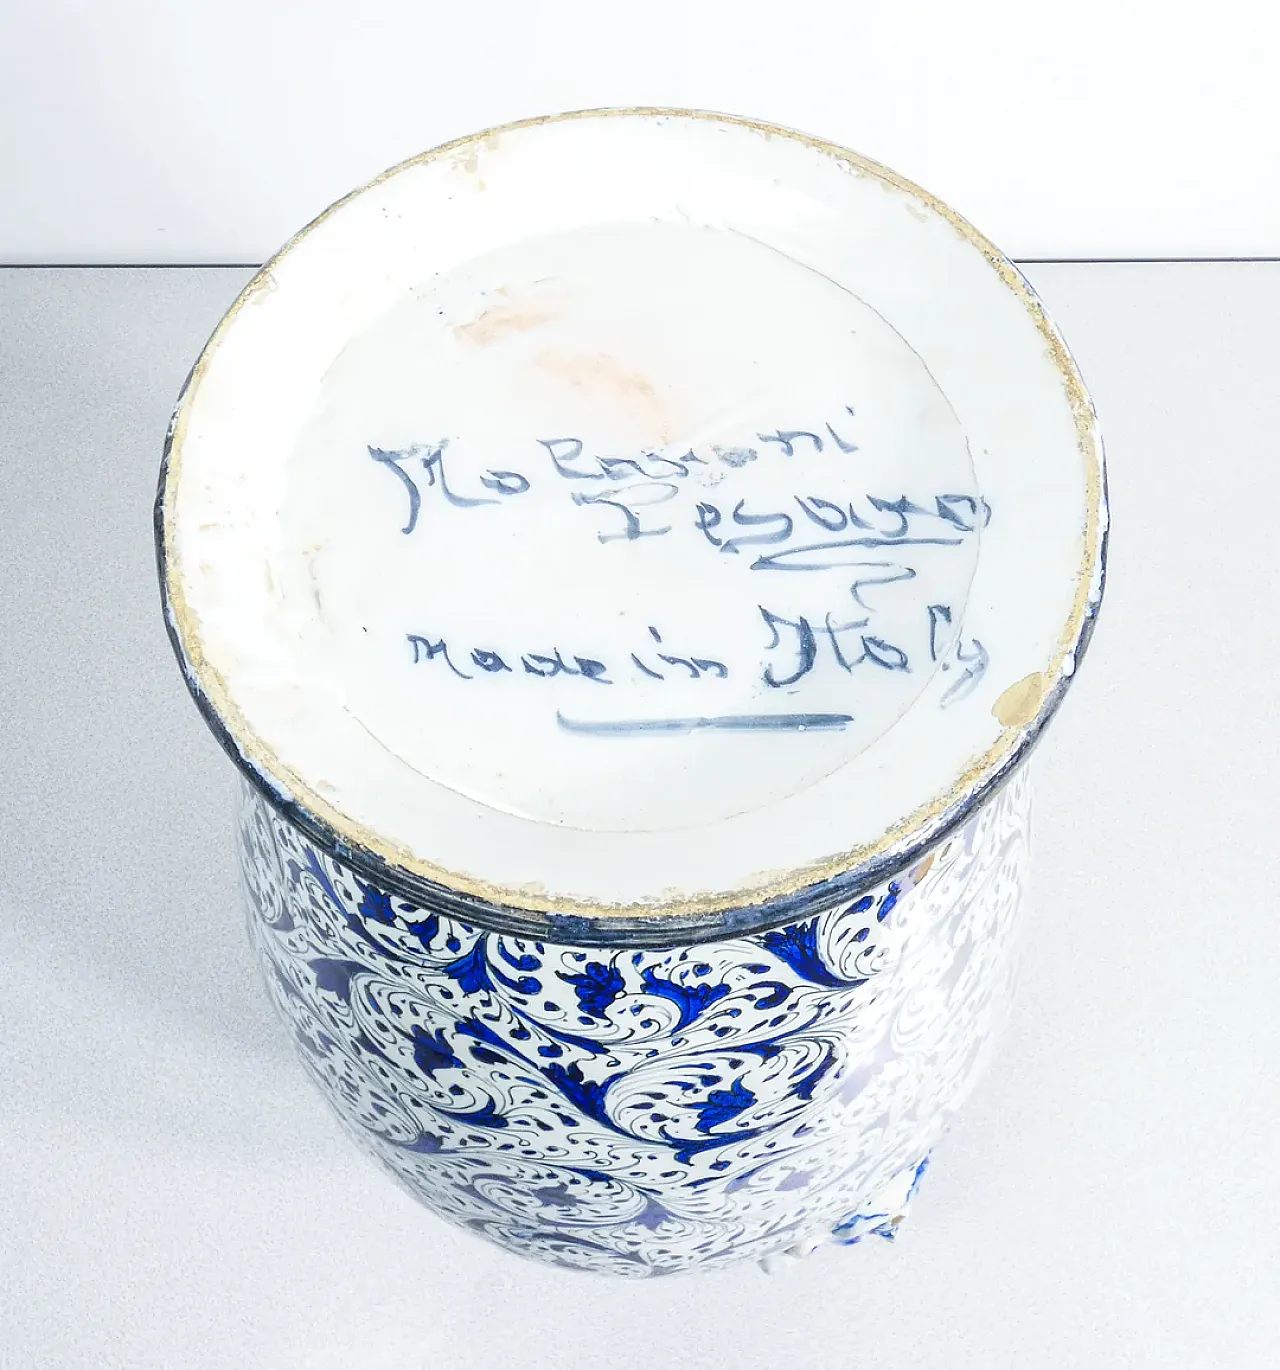 Molaroni
Pesaro
made in Italy